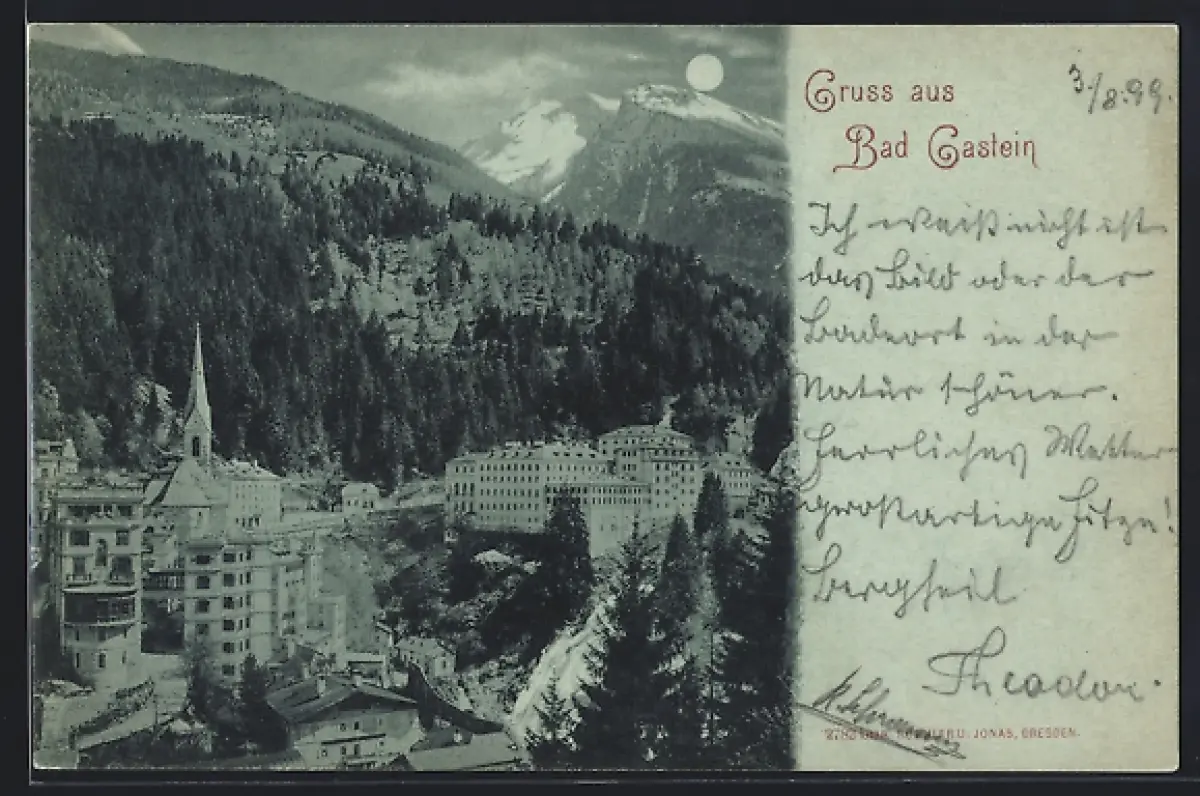 Gruss aus
Bad Gastein
3./8.99.
Ich weiß nicht ist
das Bild oder der
Badeort in der
Natur schöner.
Herrliches Wetter
großartige Hitze!
Bergheil
Theodor.
JONAS, DRESDEN.